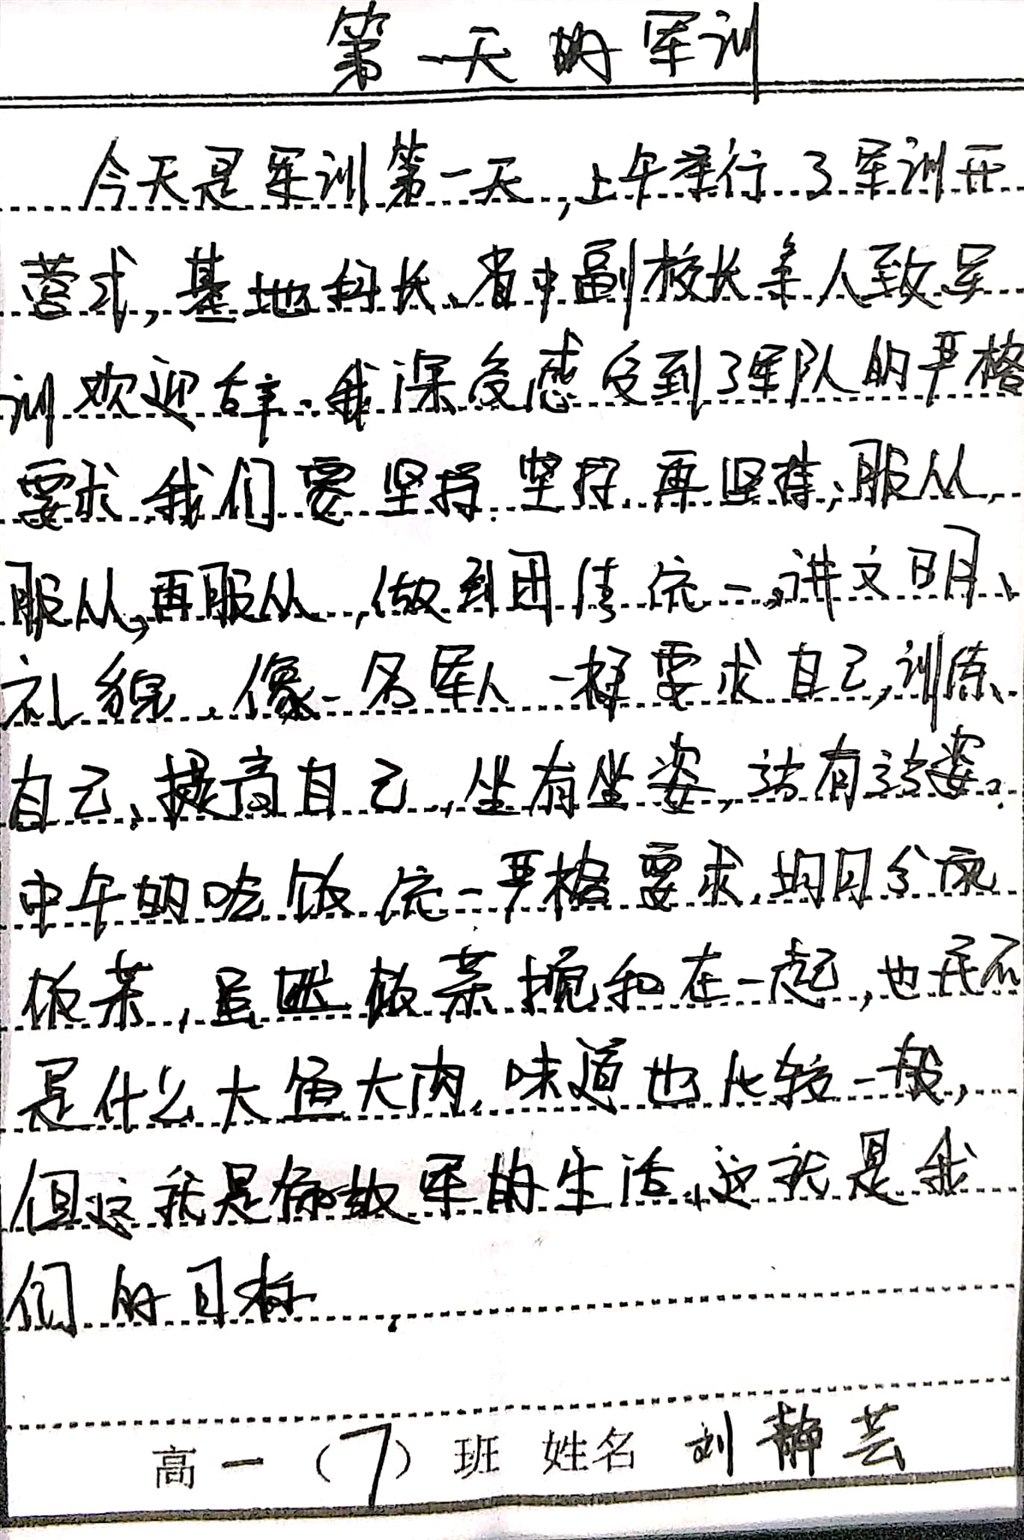 第一天的军训
今天是军训第一天,上午举行了军训开
营式,基地科长、省中副校长等人致军
训欢迎辞。我深受感受到了军队的严格
要求,我们要坚持.坚持.再坚持,服从,
服从,再服从,做到团结统一,讲文明、
礼貌,像一名军人一样要求自己,训练
自己、提高自己,坐有坐姿,站有站姿。
中午的吃饭,统一严格要求,均匀分配
饭菜,虽然饭菜搅和在一起,也并不
是什么大鱼大肉,味道也比较一般,
但这就是解放军的生活,这就是我
们的目标.
高一(7)班 姓名 刘静芸